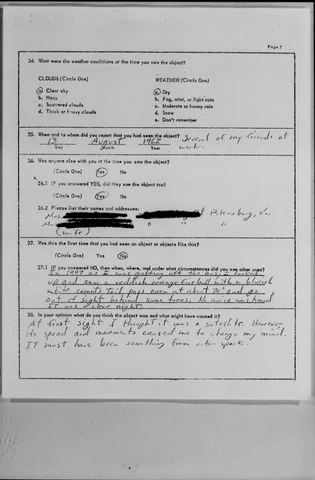 Page 7
34. What were the weather conditions at the time you saw the object?
CLOUDS (Circle One)
WEATHER (Circle One)
a. Clear sky
b. Hazy
c. Scattered clouds
d. Thick or heavy clouds
a. Dry
b. Fog, mist, or light rain
c. Moderate or heavy rain
d. Snow
e. Don't remember
35. When and to whom did you report that you had seen the object? Several of my friends at
13 August 1962 work.
Day Month Year
36. Was anyone else with you at the time you saw the object?
(Circle One) Yes No
36.1 IF you answered YES, did they see the object too?
(Circle One) Yes No
36.2 Please list their names and addresses:
Mrs. Petersburg, Va.
(wife)
37. Was this the first time that you had seen an object or objects like this?
(Circle One) Yes No
37.1 IF you answered NO, then when, where, and under what circumstances did you see other ones?
In 1947 as I was getting off the bus I looked
up and saw a reddish orange fire ball with a bluish
white comets tail pass over at about 70° and go
out of sight behind some trees. No noise was heard
It was a clear night.
38. In your opinion what do you think the object was and what might have caused it?
At first sight I thought it was a satellite. However
its speed and movements caused me to change my mind.
IT must have been something from outer space.